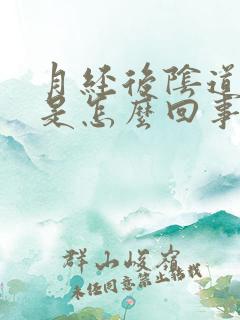 月經後陰道
是怎麼回事
群山峻嶺
未经同意禁止转载